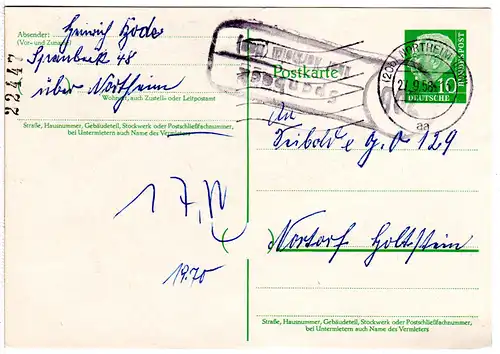 Absender:
(Vor- und Zuname)
Heinrich Bode
Spanbeck 48
über Northeim
Wohnort, auch Zustell- oder Leitpostamt
Straße, Hausnummer, Gebäudeteil, Stockwerk oder Postschließfachnummer,
bei Untermietern auch Name des Vermieters
22447
17,
1970
Postkarte
Spanbeck
über NORTHEIM
NORTHEIM
27.9.58
aa
DEUTSCHE
BUNDESPOST
10
An
129
Nortorf Holstein
Straße, Hausnummer, Gebäudeteil, Stockwerk oder Postschließfachnummer,
bei Untermietern auch Name des Vermieters